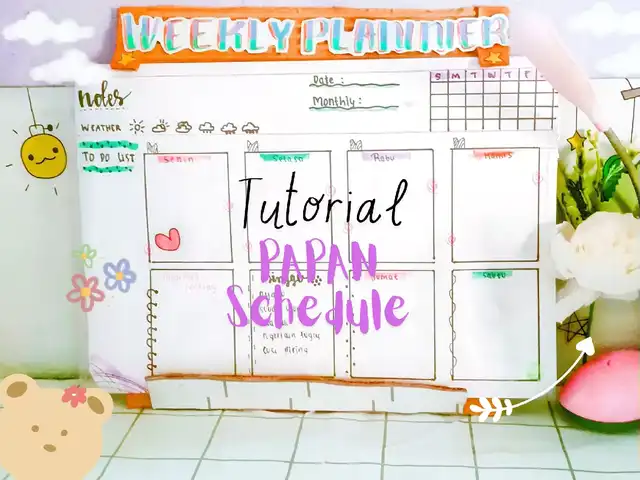 WEEKLY PLANNER
Date :
Monthly :
S M T W T F
notes
WEATHER
TO DO LIST
Senin
Selasa
Rabu
Kamis
Tutorial
PAPAN
Schedule
Minggu
Jumat
Sabtu